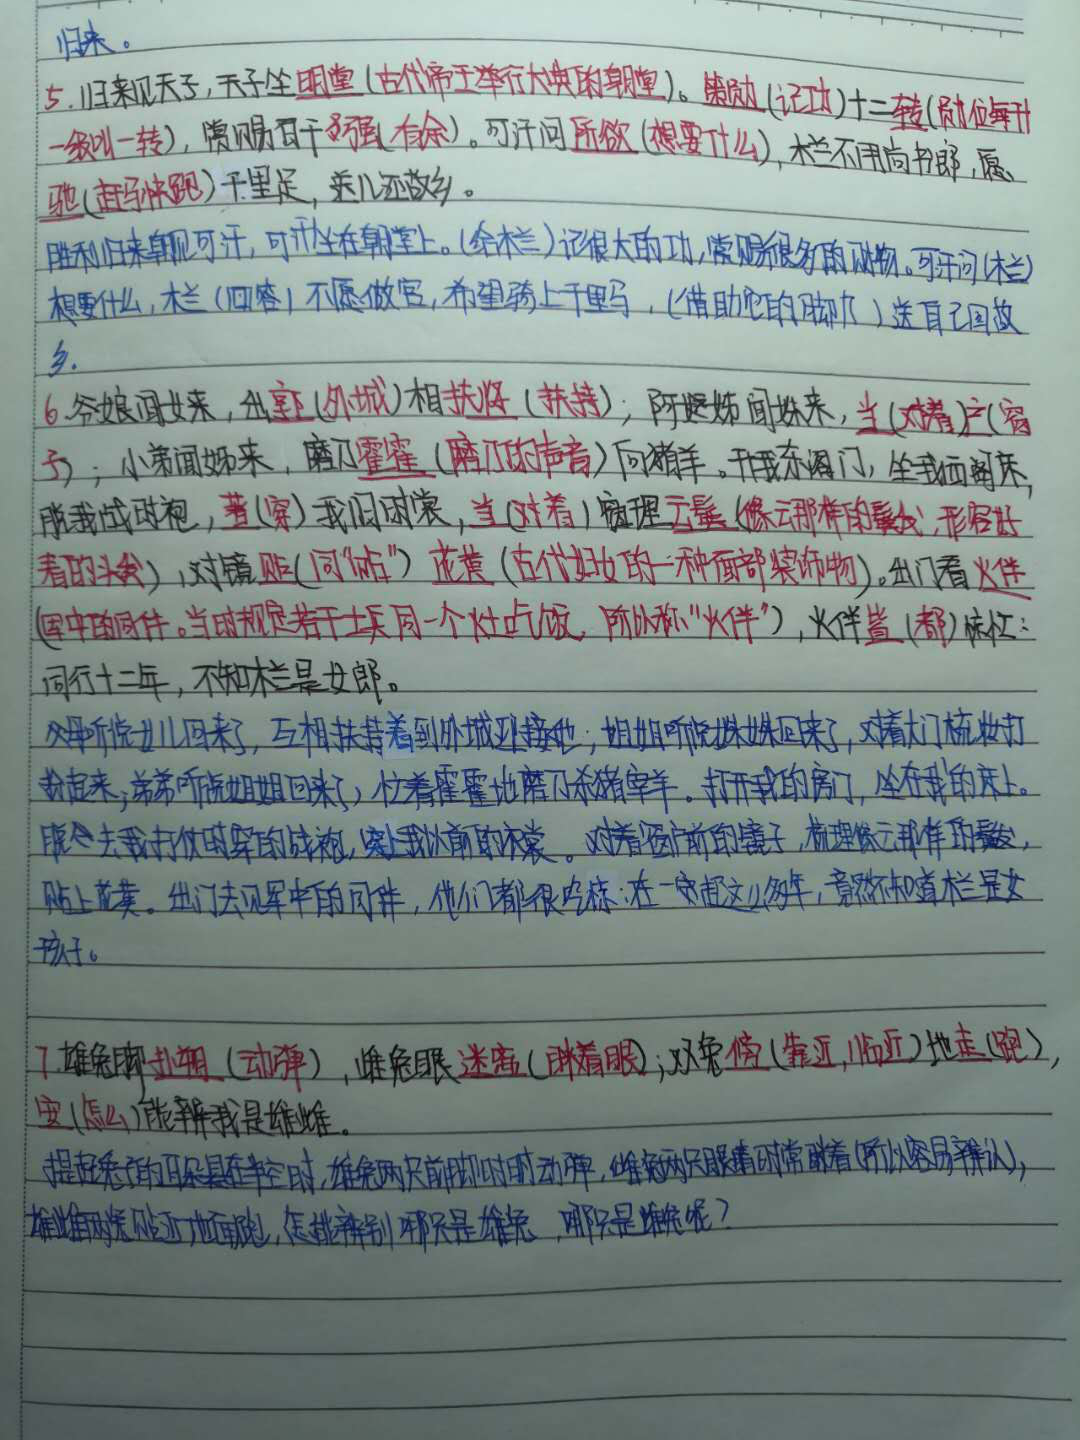 归来。
5.归来见天子，天子坐明堂(古代帝王举行大典的朝堂)。策勋(记功)十二转(勋位每升
一级叫一转)，赏赐百千强(有余)。可汗问所欲(想要什么)，木兰不用尚书郎，愿
驰(赶马快跑)千里足，送儿还故乡。
胜利归来朝见可汗，可汗坐在朝堂上。(给木兰)记很大的功，赏赐很多的财物。可汗问(木兰)
想要什么，木兰(回答)不愿做官，希望骑上千里马，(借助它的脚力)送自己回故
乡.
6.爷娘闻女来，出郭(外城)相扶将(扶持)；阿姊闻妹来，当(对着)户(窗
子)；小弟闻姊来，磨刀霍霍(磨刀的声音)向猪羊。开我东阁门，坐我西阁床，
脱我战时袍，著(穿)我旧时裳，当(对着)窗理云鬓(像云那样的鬓发，形容好
看的头发)，对镜贴(同"帖")花黄(古代妇女的一种面部装饰物)。出门看火伴
(军中的同伴。当时规定若干士兵同一个灶吃饭，所以称"火伴")，火伴皆(都)惊忙：
同行十二年，不知木兰是女郎。
父母听说女儿回来了，互相扶持着到外城迎接他；姐姐听说妹妹回来了，对着大门梳妆打
扮起来；弟弟听说姐姐回来了，忙着霍霍地磨刀杀猪宰羊。打开我的房门，坐在我的床上。
脱去我打仗时穿的战袍，穿上我以前的衣裳。对着窗户前的镜子，梳理像云那样的鬓发，
贴上花黄。出门去见军中的同伴，他们都很吃惊：在一起这么多年，竟然不知道木兰是女
孩子。
7.雄兔脚扑朔(动弹)，雌兔眼迷离(眯着眼)；双兔傍(靠近，临近)地走(跑)，
安(怎么)能辨我是雄雌。
提起兔子的耳朵悬在半空时，雄兔两只前脚时时动弹，雌兔两只眼睛时常眯着(所以容易辨认)，
雄雌两兔贴近地面跑，怎能辨别哪只是雄兔，哪只是雌兔呢？